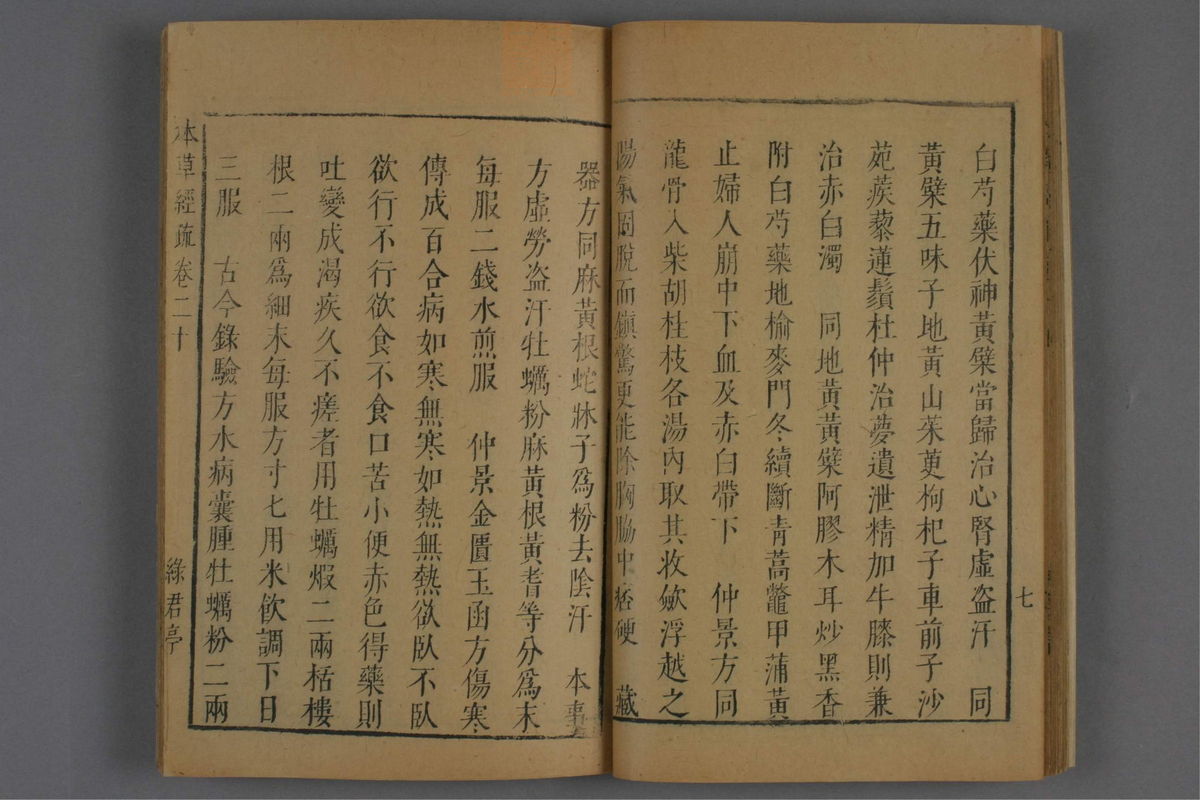 白芍藥伏神黃檗當歸治心腎虛盗汗　同
黃檗五味子地黃山茱萸枸杞子車前子沙
苑蒺藜蓮鬚杜仲治夢遺泄精加牛膝則兼
治赤白濁　同地黃黃檗阿膠木耳炒黑香
附白芍藥地榆麥門冬續斷青蒿鼈甲蒲黃
止婦人崩中下血及赤白帶下　仲景方同
龍骨入柴胡桂枝各湯內取其收斂浮越之
陽氣固脫而鎮驚更能除胸脇中痞硬　藏
七
器方同麻黃根蛇牀子爲粉去陰汗　本事
方虛勞盗汗牡蠣粉麻黃根黃耆等分爲末
每服二錢水煎服　仲景金匱玉函方傷寒
傳成百合病如寒無寒如熱無熱欲臥不臥
欲行不行欲食不食口苦小便赤色得藥則
吐變成渴疾久不瘥者用牡蠣煆二兩栝樓
根二兩爲細末每服方寸七用米飲調下日
三服　古今錄驗方水病囊腫牡蠣粉二兩
本草經疏卷二十
綠君亭